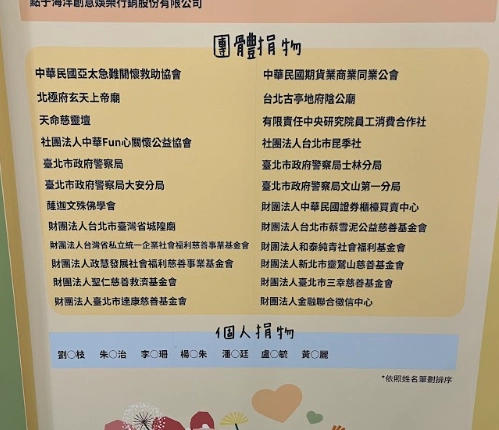 點子海洋創意娛樂行銷股份有限公司
團體捐物
中華民國亞太急難關懷救助協會
中華民國期貨業商業同業公會
北極府玄天上帝廟
台北古亭地府陰公廟
天命慈靈壇
有限責任中央研究院員工消費合作社
社團法人中華Fun心關懷公益協會
社團法人台北市崑季社
臺北市政府警察局
臺北市政府警察局士林分局
臺北市政府警察局大安分局
臺北市政府警察局文山第一分局
薩迦文殊佛學會
財團法人中華民國證券櫃檯買賣中心
財團法人台北市臺灣省城隍廟
財團法人台北市蔡雪泥公益慈善基金會
財團法人台灣省私立統一企業社會福利慈善事業基金會
財團法人和泰純青社會福利基金會
財團法人政慧發展社會福利慈善事業基金會
財團法人新北市靈鷲山慈善基金會
財團法人聖仁慈善救濟基金會
財團法人臺北市三幸慈善基金會
財團法人臺北市達康慈善基金會
財團法人金融聯合徵信中心
個人捐物
劉○枝 朱○治 李○珊 楊○朱 潘○廷 盧○毓 黃○麗
*依照姓名筆劃排序